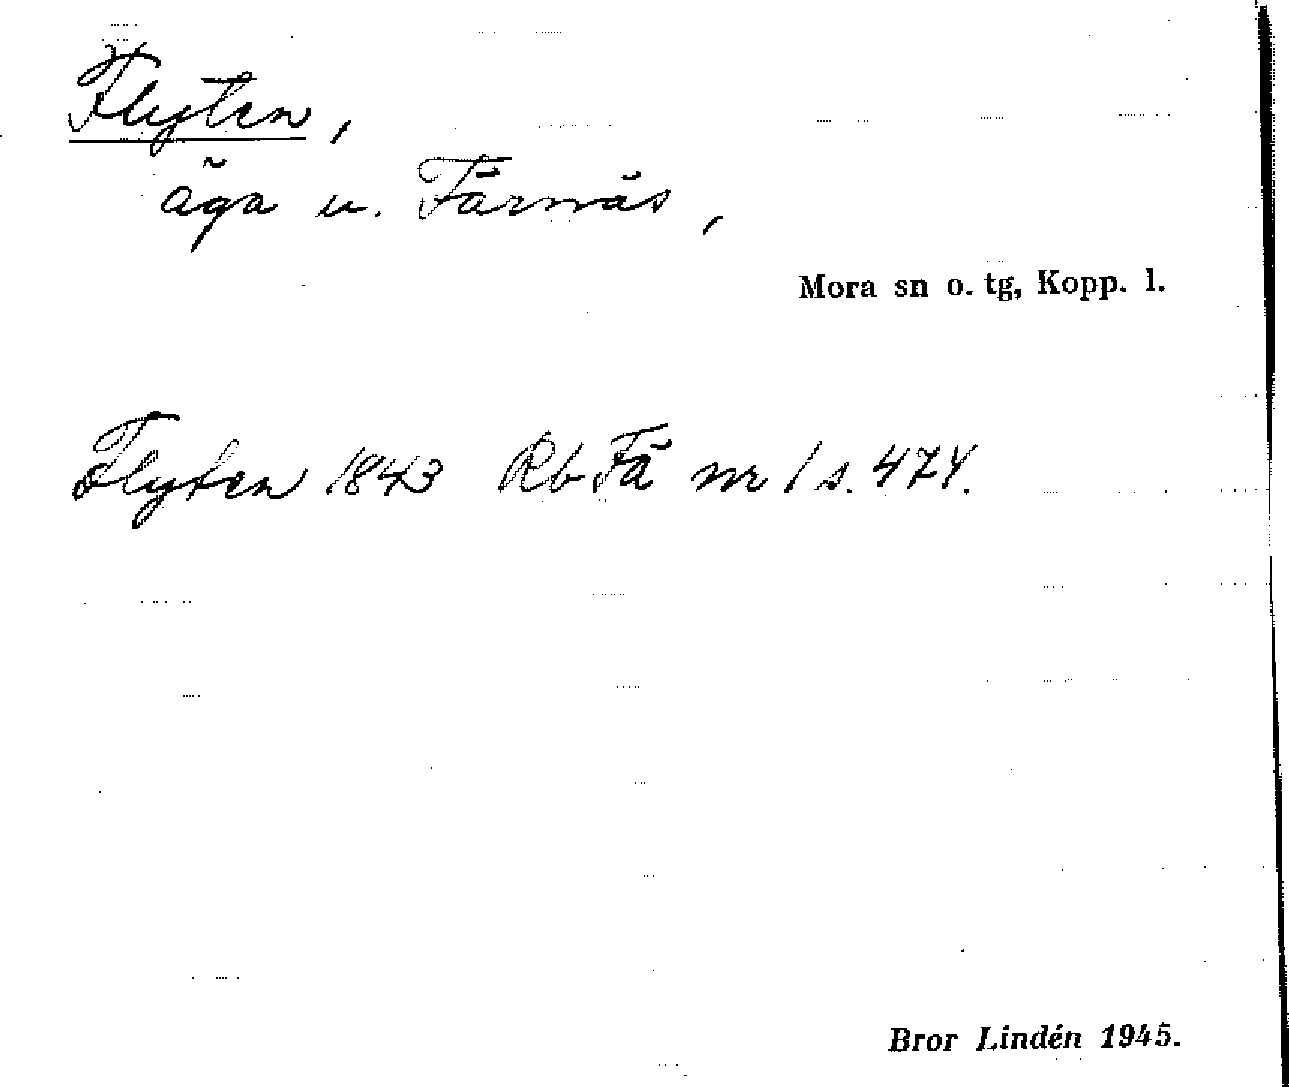 Flyten,
äga u. Färnäs,
Mora sn o. tg, Kopp. l.
Flyten 1843 Rb Fä nr 1 s. 474.
Bror Lindén 1945.